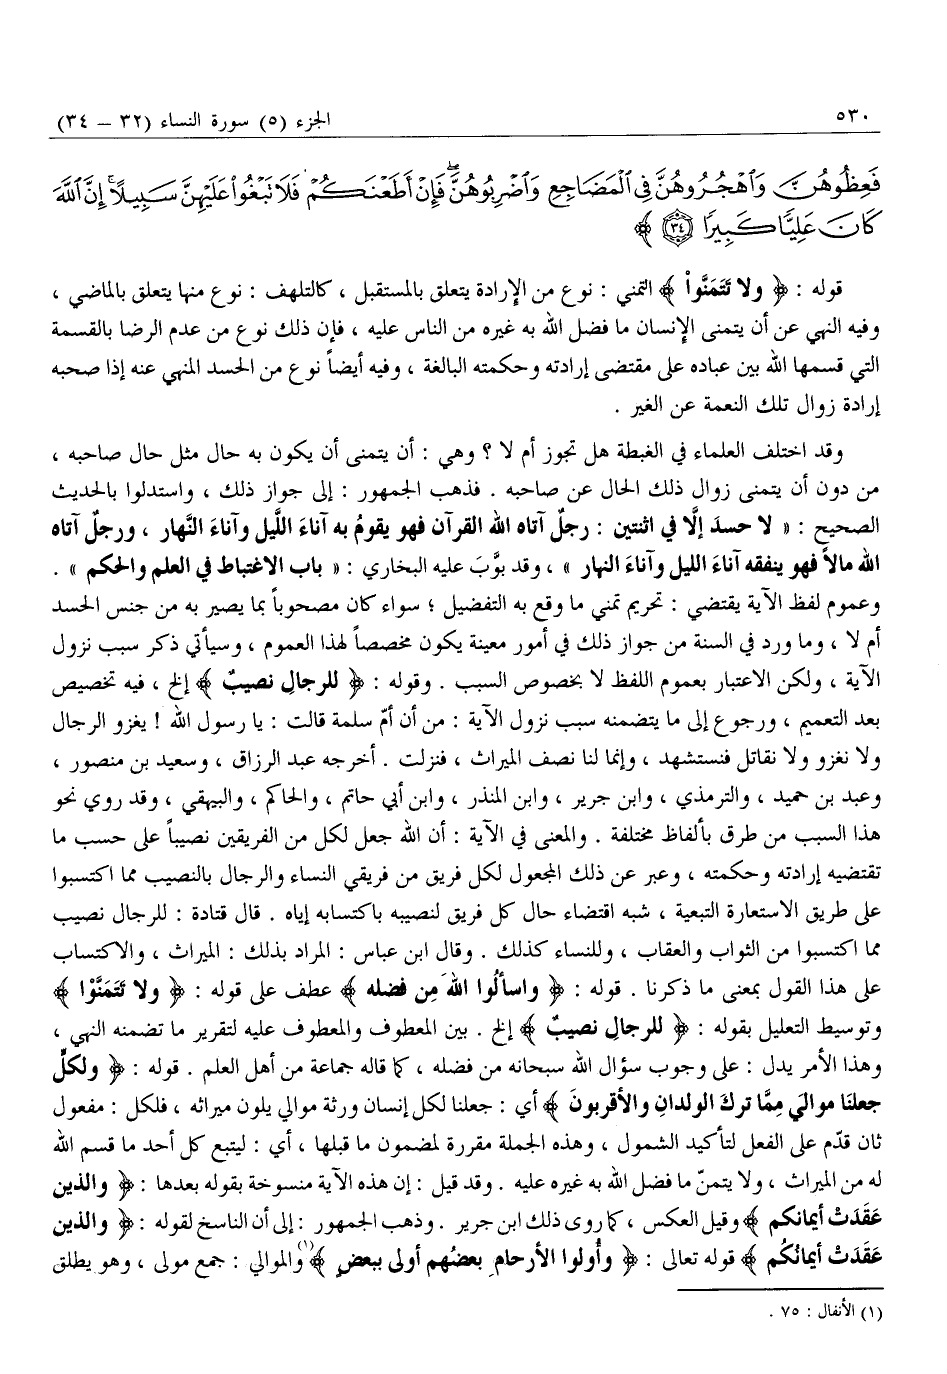 ٥٣٠
الجزء (٥) سورة النساء (٣٢ – ٣٤)
فَعِظُوهُنَّ وَٱهْجُرُوهُنَّ فِى ٱلْمَضَاجِعِ وَٱضْرِبُوهُنَّ ۖ فَإِنْ أَطَعْنَكُمْ فَلَا تَبْغُوا۟ عَلَيْهِنَّ سَبِيلًا ۗ إِنَّ ٱللَّهَ
كَانَ عَلِيًّا كَبِيرًا ﴿٣٤﴾ ﴾
قوله : ﴿ ولا تَتَمَنَّواْ ﴾ التمني : نوع من الإرادة يتعلق بالمستقبل ، كالتلهف : نوع منها يتعلق بالماضي ،
وفيه النهي عن أن يتمنى الإنسان ما فضل الله به غيره من الناس عليه ، فإن ذلك نوع من عدم الرضا بالقسمة
التي قسمها الله بين عباده على مقتضى إرادته وحكمته البالغة ، وفيه أيضاً نوع من الحسد المنهي عنه إذا صحبه
إرادة زوال تلك النعمة عن الغير .
وقد اختلف العلماء في الغبطة هل تجوز أم لا ؟ وهي : أن يتمنى أن يكون به حال مثل حال صاحبه ،
من دون أن يتمنى زوال ذلك الحال عن صاحبه . فذهب الجمهور : إلى جواز ذلك ، واستدلوا بالحديث
الصحيح : « لا حسدَ إلَّا في اثنتين : رجلٌ آتاه الله القرآن فهو يقومُ به آناءَ اللَّيل وآناءَ النَّهار ، ورجلٌ آتاه
الله مالاً فهو ينفقه آناءَ الليل وآناءَ النهار » ، وقد بوَّبَ عليه البخاري : « باب الاغتباط في العلم والحكم » .
وعموم لفظ الآية يقتضي : تحريم تمني ما وقع به التفضيل ؛ سواء كان مصحوباً بما يصير به من جنس الحسد
أم لا ، وما ورد في السنة من جواز ذلك في أمور معينة يكون مخصصاً لهذا العموم ، وسيأتي ذكر سبب نزول
الآية ، ولكن الاعتبار بعموم اللفظ لا بخصوص السبب . وقوله : ﴿ للرجالِ نصيبٌ ﴾ إلخ ، فيه تخصيص
بعد التعميم ، ورجوع إلى ما يتضمنه سبب نزول الآية : من أن أمّ سلمة قالت : يا رسول الله ! يغزو الرجال
ولا نغزو ولا نقاتل فنستشهد ، وإنما لنا نصف الميراث ، فنزلت . أخرجه عبد الرزاق ، وسعيد بن منصور ،
وعبد بن حميد ، والترمذي ، وابن جرير ، وابن المنذر ، وابن أبي حاتم ، والحاكم ، والبيهقي ، وقد روي نحو
هذا السبب من طرق بألفاظ مختلفة . والمعنى في الآية : أن الله جعل لكل من الفريقين نصيباً على حسب ما
تقتضيه إرادته وحكمته ، وعبر عن ذلك المجعول لكل فريق من فريقي النساء والرجال بالنصيب مما اكتسبوا
على طريق الاستعارة التبعية ، شبه اقتضاء حال كل فريق لنصيبه باكتسابه إياه . قال قتادة : للرجال نصيب
مما اكتسبوا من الثواب والعقاب ، وللنساء كذلك . وقال ابن عباس : المراد بذلك : الميراث ، والاكتساب
على هذا القول بمعنى ما ذكرنا . قوله : ﴿ واسألُوا اللهَ مِن فضله ﴾ عطف على قوله : ﴿ ولا تَتَمَنَّوْا ﴾
وتوسيط التعليل بقوله : ﴿ للرجالِ نصيبٌ ﴾ إلخ . بين المعطوف والمعطوف عليه لتقرير ما تضمنه النهي ،
وهذا الأمر يدل : على وجوب سؤال الله سبحانه من فضله ، كما قاله جماعة من أهل العلم . قوله : ﴿ ولكلٍّ
جعلنَا مواليَ مِمَّا تركَ الولدانِ والأقربونَ ﴾ أي : جعلنا لكل إنسان ورثة موالي يلون ميراثه ، فلكل : مفعول
ثان قدّم على الفعل لتأكيد الشمول ، وهذه الجملة مقررة لمضمون ما قبلها ، أي : ليتبع كل أحد ما قسم الله
له من الميراث ، ولا يتمنّ ما فضل الله به غيره عليه . وقد قيل : إن هذه الآية منسوخة بقوله بعدها : ﴿ والذين
عقَدَتْ أيمانكم ﴾ وقيل العكس ، كما روى ذلك ابن جرير . وذهب الجمهور : إلى أن الناسخ لقوله : ﴿ والذين
عقَدَتْ أيمانُكُم ﴾ قوله تعالى : ﴿ وأُولوا الأرحامِ بعضُهم أولى ببعضٍ ﴾(١) والموالي : جمع مولى ، وهو يطلق
(١) الأنفال : ٧٥ .